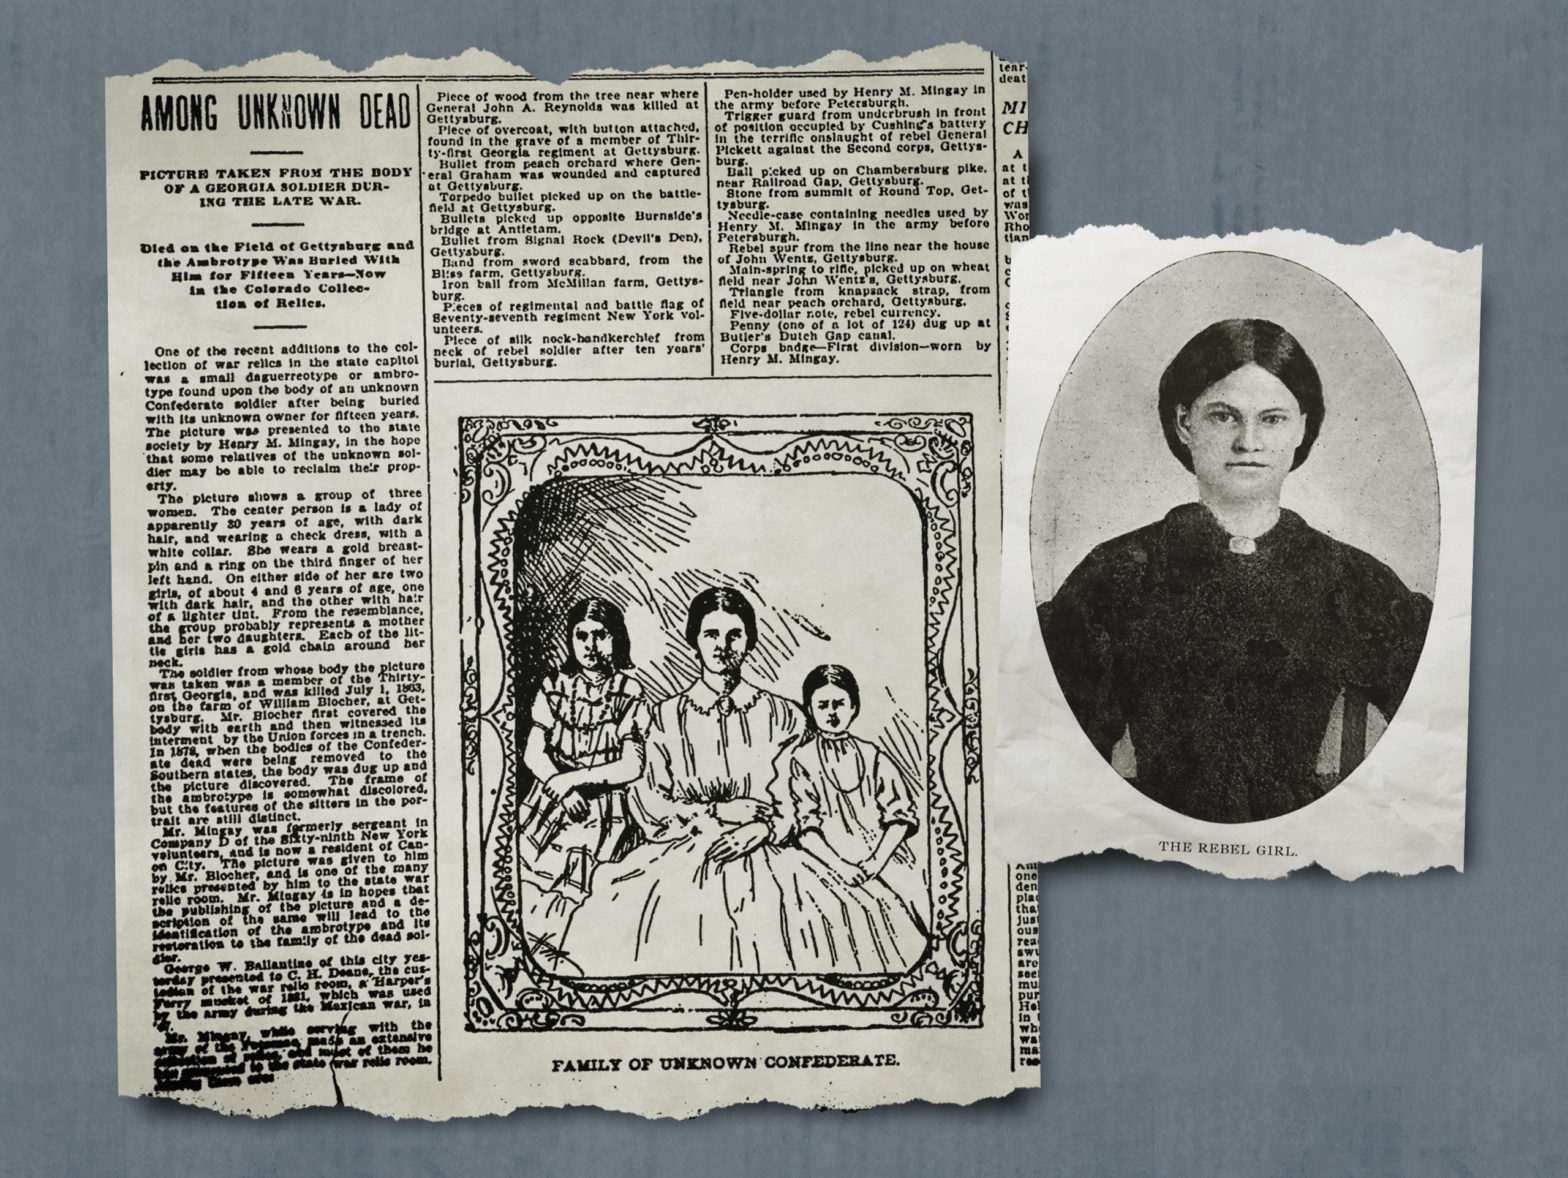 AMONG UNKNOWN DEAD
PICTURE TAKEN FROM THE BODY
OF A GEORGIA SOLDIER DUR-
ING THE LATE WAR.
Died on the Field of Gettysburg and
the Ambrotype Was Buried With
Him for Fifteen Years—Now
in the Colorado Collec-
tion of Relics.
One of the recent additions to the col-
lection of war relics in the state capitol
was a small daguerreotype or ambro-
type found upon the body of an unknown
Confederate soldier after being buried
with its unknown owner for fifteen years.
The picture was presented to the state
society by Henry M. Mingay, in the hope
that some relatives of the unknown sol-
dier may be able to reclaim their prop-
erty.
The picture shows a group of three
women. The center person is a lady of
apparently 30 years of age, with dark
hair, and wearing a check dress, with a
white collar. She wears a gold breast-
pin and a ring on the third finger of her
left hand. On either side of her are two
girls, of about 4 and 6 years of age, one
with dark hair, and the other with hair
of a lighter tint. From the resemblance,
the group probably represents a mother
and her two daughters. Each of the lit-
tle girls has a gold chain around her
neck.
The soldier from whose body the picture
was taken was a member of the Thirty-
first Georgia, and was killed July 1, 1863,
on the farm of William Blocher, at Get-
tysburg. Mr. Blocher first covered the
body with earth and then witnessed its
interment by the Union forces in a trench.
In 1878, when the bodies of the Confeder-
ate dead were being removed to the
Southern states, the body was dug up and
the picture discovered. The frame of
the ambrotype is somewhat discolored,
but the features of the sitters in the por-
trait are still distinct.
Mr. Mingay was formerly sergeant in
Company D of the Sixty-ninth New York
volunteers, and is now a resident of Can-
on City. The picture was given to him
by Mr. Blocher, and is one of the many
relics presented by him to the state war
relic room. Mr. Mingay is in hopes that
the publishing of the picture and a de-
scription of the same will lead to the
identification of the ambrotype and its
restoration to the family of the dead sol-
dier.
George W. Ballantine of this city yes-
terday presented to C. H. Deane, the cus-
todian of the war relic room, a Harper's
Ferry musket of 1831, which was used
by the army during the Mexican war, in
Mr. Mingay, while serving with the
army of the Potomac, made an extensive
and most of them he
to the state war relic room.
Among them are
Piece of wood from the tree near where
General John A. Reynolds was killed at
Gettysburg.
Piece of overcoat, with button attached,
found in the grave of a member of Thir-
ty-first Georgia regiment at Gettysburg.
Bullet from peach orchard where Gen-
eral Graham was wounded and captured
at Gettysburg.
Torpedo bullet picked up on the battle-
field at Gettysburg.
Bullets picked up opposite Burnside's
bridge at Antietam.
Bullet from Signal Rock (Devil's Den),
Gettysburg.
Band from sword scabbard, from the
Bliss farm, Gettysburg.
Iron ball from McMillan farm, Gettys-
burg.
Pieces of regimental and battle flag of
Seventy-seventh regiment New York vol-
unteers.
Piece of silk nock-handkerchief from
neck of rebel soldier after ten years'
burial, Gettysburg.
Pen-holder used by Henry M. Mingay in
the army before Petersburgh.
Trigger guard from underbrush in front
of position occupied by Cushing's battery
in the terrific onslaught of rebel General
Pickett against the Second corps, Gettys-
burg.
Ball picked up on Chambersburg pike,
near Railroad Gap, Gettysburg.
Stone from summit of Round Top, Get-
tysburg.
Needle-case containing needles used by
Henry M. Mingay in the army before
Petersburgh.
Rebel spur from the line near the house
of John Wentz, Gettysburg.
Main-spring to rifle, picked up on wheat
field near John Wentz's, Gettysburg.
Triangle from knapsack strap, from
field near peach orchard, Gettysburg.
Five-dollar note, rebel currency.
Penny (one of a lot of 124) dug up at
Butler's Dutch Gap canal.
Corps badge—First division—worn by
Henry M. Mingay.
FAMILY OF UNKNOWN CONFEDERATE.
tear-
deat
MI
CH
A
at t
at t
of t
was
Wor
Rho
tian
one
den
plan
that
just
ous
rea
awa
see
mu
pur
He
in
wh
ma
roo
THE REBEL GIRL.